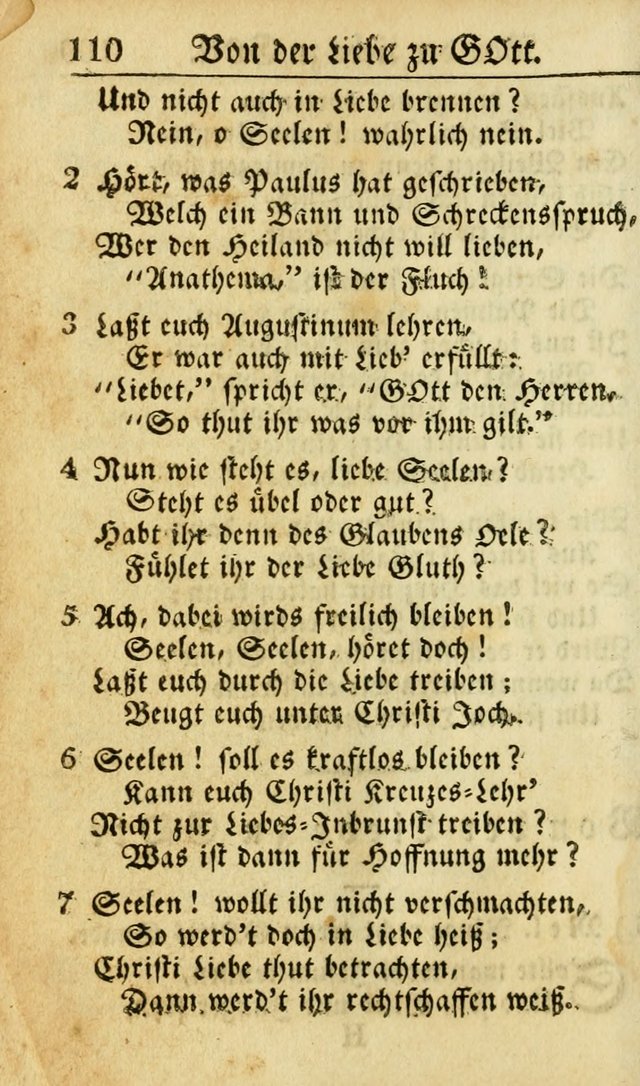 110 Von der Liebe zu GOtt.
Und nicht auch in Liebe brennen?
Nein, o Seelen! wahrlich nein.
2 Hört, was Paulus hat geschrieben,
Welch ein Bann und Schreckensspruch,
Wer den Heiland nicht will lieben,
"Anathema," ist der Fluch!
3 Laßt euch Augustinum lehren,
Er war auch mit Lieb' erfüllt:
"Liebet," spricht er, "GOtt den Herren,
"So thut ihr was vor ihm gilt."
4 Nun wie steht es, liebe Seelen?
Steht es übel oder gut?
Habt ihr denn des Glaubens Oele?
Fühlet ihr der Liebe Gluth?
5 Ach, dabei wirds freilich bleiben!
Seelen, Seelen, höret doch!
Laßt euch durch die Liebe treiben;
Beugt euch unter Christi Joch.
6 Seelen! soll es kraftlos bleiben?
Kann euch Christi Kreuzes-Lehr'
Nicht zur Liebes-Inbrunst treiben?
Was ist dann für Hoffnung mehr?
7 Seelen! wollt ihr nicht verschmachten,
So werd't doch in Liebe heiß;
Christi Liebe thut betrachten,
Dann werd't ihr rechtschaffen weiß.